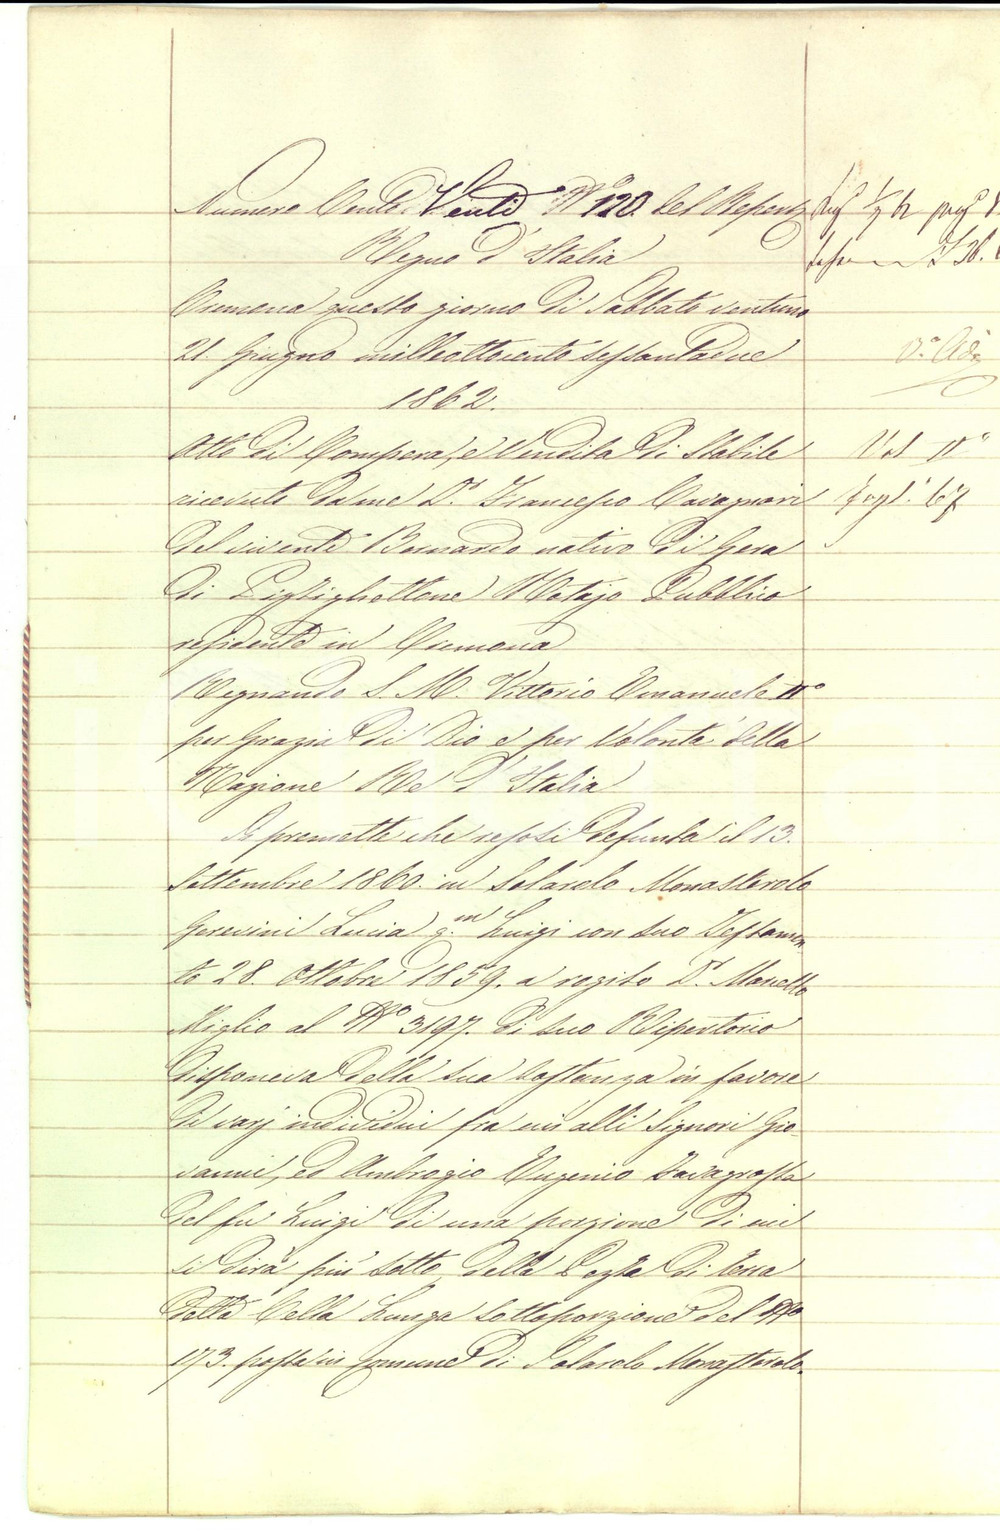 Numero Cento Venti N.° 120. del Repert.
Regno d'Italia
Cremona questo giorno di Sabbato ventuno
21. Giugno mille ottocento sessantadue
1862.
Atto di Compera, e Vendita di Stabile
ricevuto da me D.r Francesco Cavagnari
del vivente Bernardo nativo di Gera
di Pizzighettone Notajo Pubblico
residente in Cremona
Regnando S. M. Vittorio Emanuele II°
per Grazia di Dio e per Volontà della
Nazione Re d'Italia
Si premette che resosi defunta il 13.
Settembre 1860. in Solarolo Monasterolo
Gerevini Lucia q.m Luigi con suo Testamen
to 28. Ottobre 1859. a rogito D.r
Miglio al N.° 3197. di suo Repertorio
disponeva della sua sostanza in favore
di varj individui fra cui alli Signori Gio
vanni, ed Ambrogio Eugenio Favagrossa
del fu Luigi di una porzione di cui
si dirà più sotto della Pezza di terra
detta Cella Lunga sottoporzione del N.°
173. posta in Comune di Solarolo Monasterolo.
V.°
Vol II°